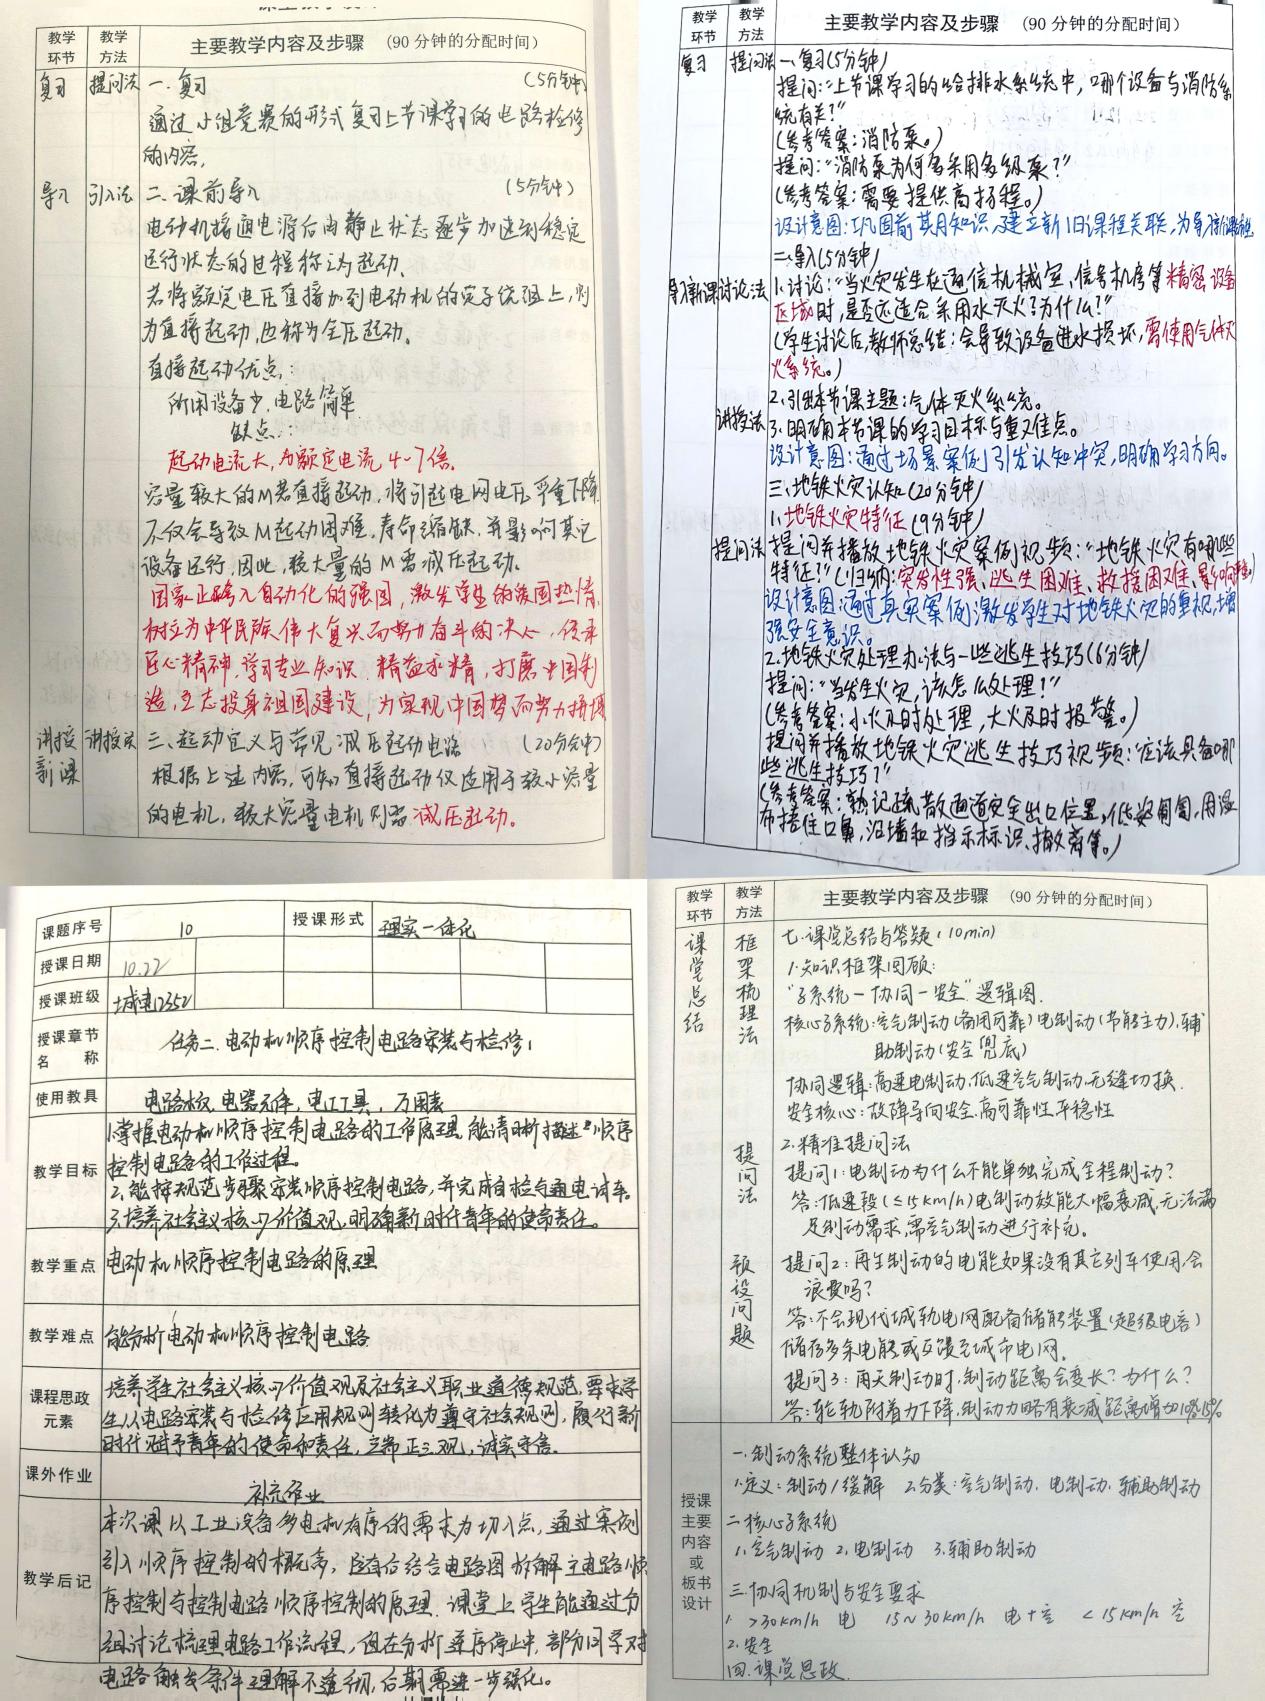 教学环节 教学方法 主要教学内容及步骤 (90 分钟的分配时间)
复习 提问法 一.复习 (5分钟)
通过小组竞赛的形式复习上节课学习的电路检修
的内容,
导入 引入法 二.课前导入 (5分钟)
电动机接通电源后由静止状态逐步加速到稳定
运行状态的过程称为起动、
若将额定电压直接加到电动机的定子绕组上,则
为直接起动,也称为全压起动。
直接起动优点:
所用设备少,电路简单
缺点:
起动电流大,为额定电流4-7倍.
容量较大的M若直接起动,将引起电网电压严重下降
不仅会导致M起动困难、寿命缩缺,并影响其它
设备运行,因此,较大量的M需减压起动。
国家正跨入自动化的强国,激发学生的爱国热情,
树立为中华民族伟大复兴而努力奋斗的决心,传承
匠心精神,学习专业知识,精益求精,打磨中国制
造,立志投身祖国建设,为实现中国梦而努力拼搏
讲授新课 讲授法 三.起动定义与常见减压起动电路 (20分钟)
根据上述内容,可知直接起动仅适用于较小容量
的电机,较大容量电机则需减压起动。
教学环节 教学方法 主要教学内容及步骤 (90 分钟的分配时间)
复习 提问法 一、复习(5分钟)
提问:“上节课学习的给排水系统中,哪个设备与消防系
统有关?”
(参考答案:消防泵。)
提问:“消防泵为何多采用多级泵?”
(参考答案:需要提供高扬程。)
设计意图:巩固前期知识,建立新旧课程关联,为导入新课铺垫
二、导入(5分钟)
导入新课 讨论法 1.讨论:“当火灾发生在通信机械室、信号机房等精密设备
区域时,是否还适合采用水灭火?为什么?”
(学生讨论后,教师总结:会导致设备进水损坏,需使用气体灭
火系统。)
2.引出本节课主题:气体灭火系统。
讲授法 3.明确本节课的学习目标与重难点。
设计意图:通过场景案例引发认知冲突,明确学习方向。
三、地铁火灾认知(20分钟)
1.地铁火灾特征(9分钟)
提问法 提问并播放地铁火灾案例视频:“地铁火灾有哪些
特征?”(归纳:突发性强、逃生困难、救援困难、影响恶劣。)
设计意图:通过真实案例激发学生对地铁火灾的重视,增
强安全意识。
2.地铁火灾处理办法与一些逃生技巧(6分钟)
提问:“当发生火灾,该怎么处理?”
(参考答案:小火及时处理,大火及时报警。)
提问并播放地铁火灾逃生技巧视频:“应该具备哪
些逃生技巧?”
(参考答案:熟记疏散通道安全出口位置,低姿匍匐,用湿
布捂住口鼻,沿墙和指示标识、撤离等。)
课题序号 10 授课形式 理实一体化
授课日期 10.22
授课班级 城电12352
授课章节名称 任务二、电动机顺序控制电路安装与检修1
使用教具 电路板、电器元件,电工工具,万用表
教学目标 1.掌握电动机顺序控制电路的工作原理,能清晰描述顺序
控制电路的工作过程。
2.能按规范步骤安装顺序控制电路,并完成自检与通电试车。
3.培养社会主义核心价值观,明确新时代青年的使命责任。
教学重点 电动机顺序控制电路的原理
教学难点 能分析电动机顺序控制电路
课程思政元素 培养学生社会主义核心价值观及社会主义职业道德规范,要求学
生从电路安装与检修应用规则转化为遵守社会规则,履行新
时代赋予青年的使命和责任,立端正三观,诚实守信。
课外作业 补充作业
教学后记 本次课以工业设备多电机有序的需求为切入点,通过案例
引入顺序控制的概念,随后结合电路图拆解主电路顺
序控制与控制电路顺序控制的原理。课堂上学生能通过分
组讨论梳理电路工作流程,但在分析逆序停止中,部分同学对
电路触发条件理解不透彻,后期需进一步强化。
教学环节 教学方法 主要教学内容及步骤 (90 分钟的分配时间)
课堂总结 框架梳理法 七.课堂总结与答疑(10min)
1.知识框架回顾:
“子系统-协同-安全”逻辑图.
核心子系统:空气制动(备用可靠)电制动(节能主力)、辅
助制动(安全兜底)
协同逻辑:高速电制动、低速空气制动、无缝切换.
安全核心:故障导向安全、高可靠性、平稳性
提问法 2.精准提问法
提问1:电制动为什么不能单独完成全程制动?
答:低速段(≤15km/h)电制动效能大幅衰减,无法满
足制动需求,需空气制动进行补充。
预设问题 提问2:再生制动的电能如果没有其它列车使用,会
浪费吗?
答:不会,现代城轨电网配备储能装置(超级电容)
储存多余电能或反馈至城市电网.
提问3:雨天制动时,制动距离会变长?为什么?
答:轮轨附着力下降,制动力略有衰减,距离增加10%-15%
授课主要内容或板书设计
一.制动系统整体认知
1.定义:制动/缓解 2.分类:空气制动、电制动、辅助制动
二.核心子系统
1.空气制动 2.电制动 3.辅助制动
三.协同机制与安全要求
1. >30km/h 电 15~30km/h 电+空 <15km/h 空
2.安全
四.课堂思政